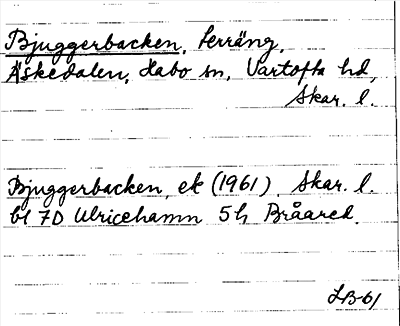 Bjuggerbacken, Perräng,
Äskedalen, Habo sn, Vartofta hd,
Skar. l.
Bjuggerbacken, ek (1961). Skar. l.
bl 7D Ulricehamn 5h Bråared.
LB-61